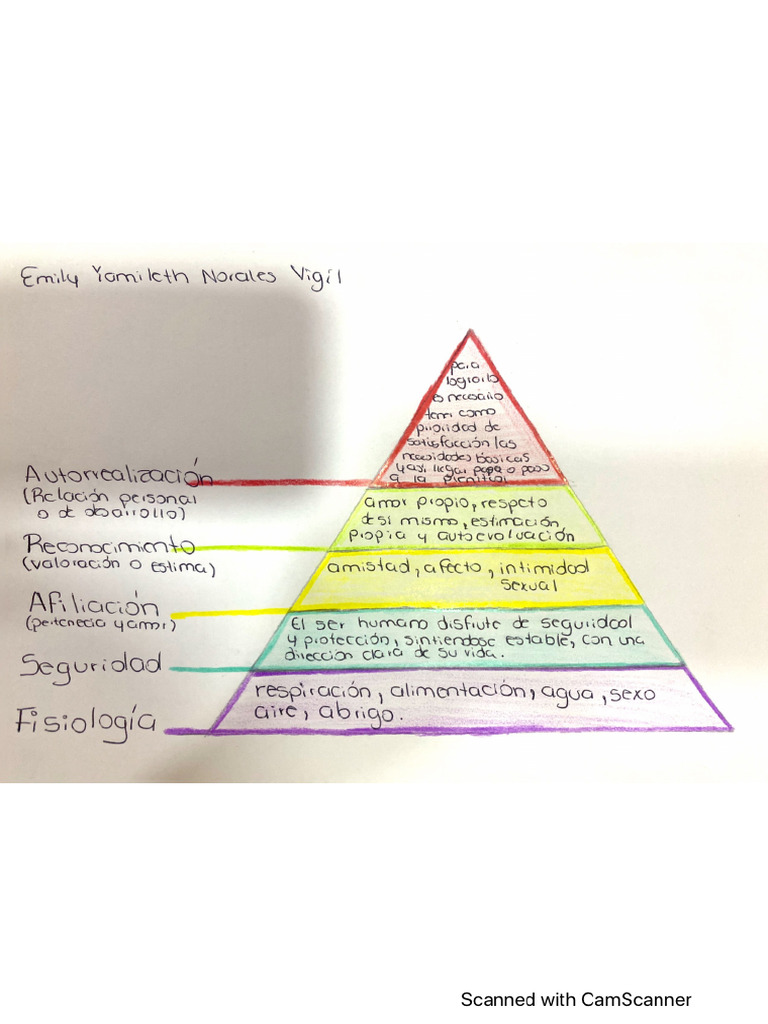 Emily Yamileth Norales Vigil
para
lograrlo
es necesario
tener como
prioridad de
satisfacción las
necesidades básicas
y así llegar paso a paso
a la plenitud
Autorrealización
(Relación personal
o de desarrollo)
amor propio, respeto
de sí mismo, estimación
propia y autoevaluación
Reconocimiento
(valoración o estima)
amistad, afecto, intimidad
sexual
Afiliación
(pertenecia y amor)
El ser humano disfrute de seguridad
y protección, sintiendose estable, con una
dirección clara de su vida.
Seguridad
respiración, alimentación, agua, sexo
aire, abrigo.
Fisiología
Scanned with CamScanner